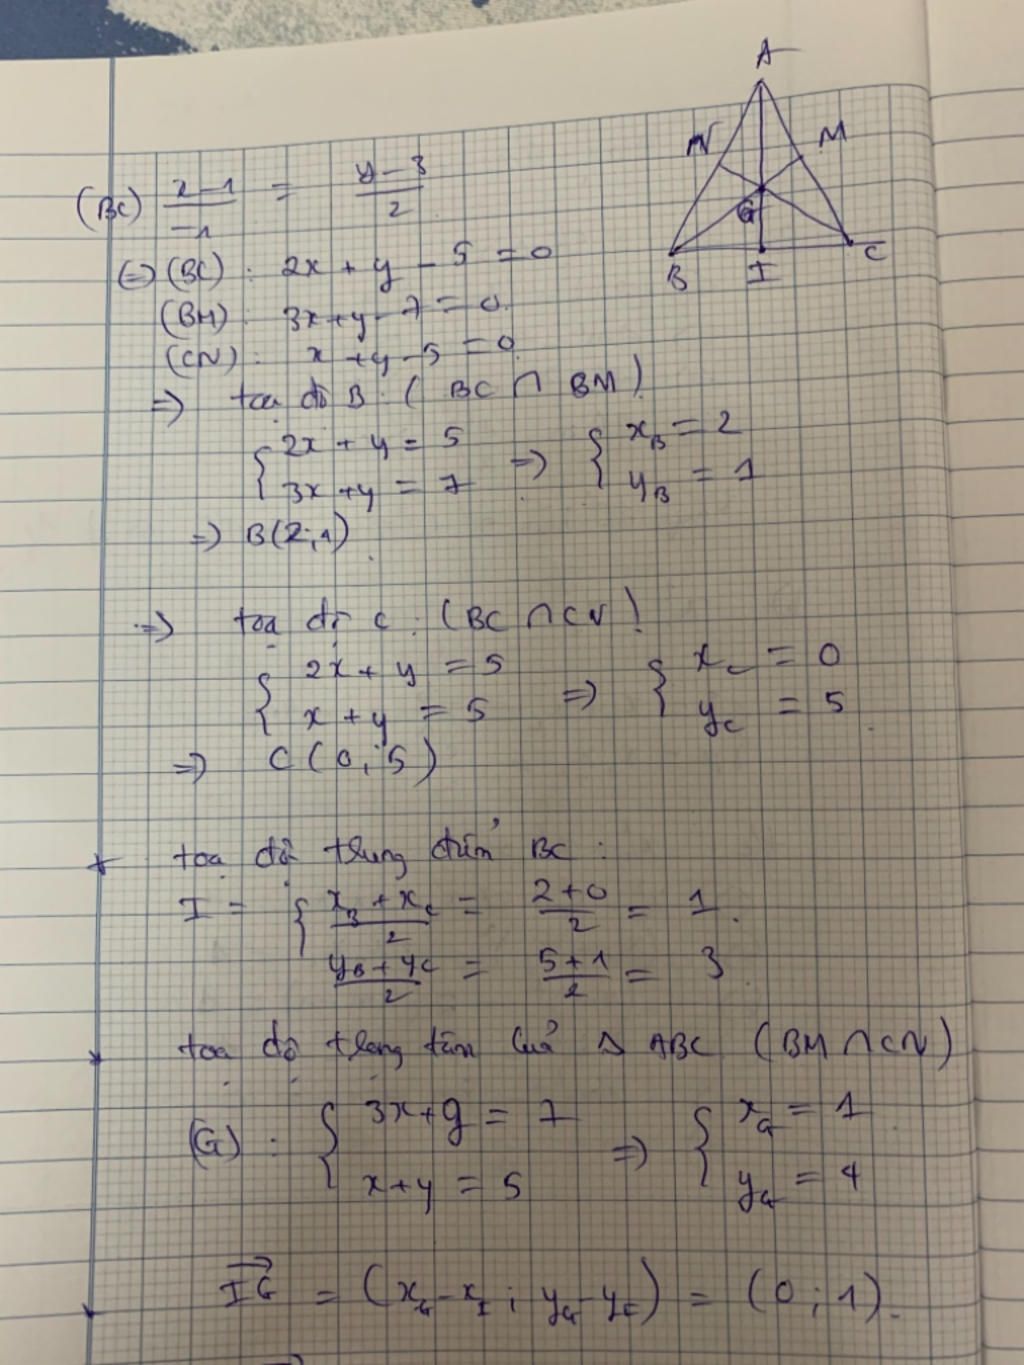 A
N
M
G
B
I
C
(BC) x-1/-1 = y-3/2
(=) (BC): 2x + y - 5 = 0
(BM): 3x+y-7=0.
(CN): x+y-5=0
=> toạ độ B: (BC ∩ BM)
{ 2x + y = 5 => { x_B = 2
3x+y = 7 y_B = 1
=> B(2;1).
=> toạ độ C: (BC ∩ CN)
{ 2x + y = 5 => { x_C = 0
x + y = 5 y_C = 5.
=> C(0;5)
+ toạ độ trung điểm BC:
I = { x_B + x_C/2 = 2+0/2 = 1.
y_B + y_C/2 = 5+1/2 = 3
toạ độ trọng tâm của Δ ABC (BM ∩ CN)
(G): { 3x+y = 7 => { x_G = 1
x+y = 5 y_G = 4
→IG = (x_G - x_I; y_G - y_I) = (0;1).